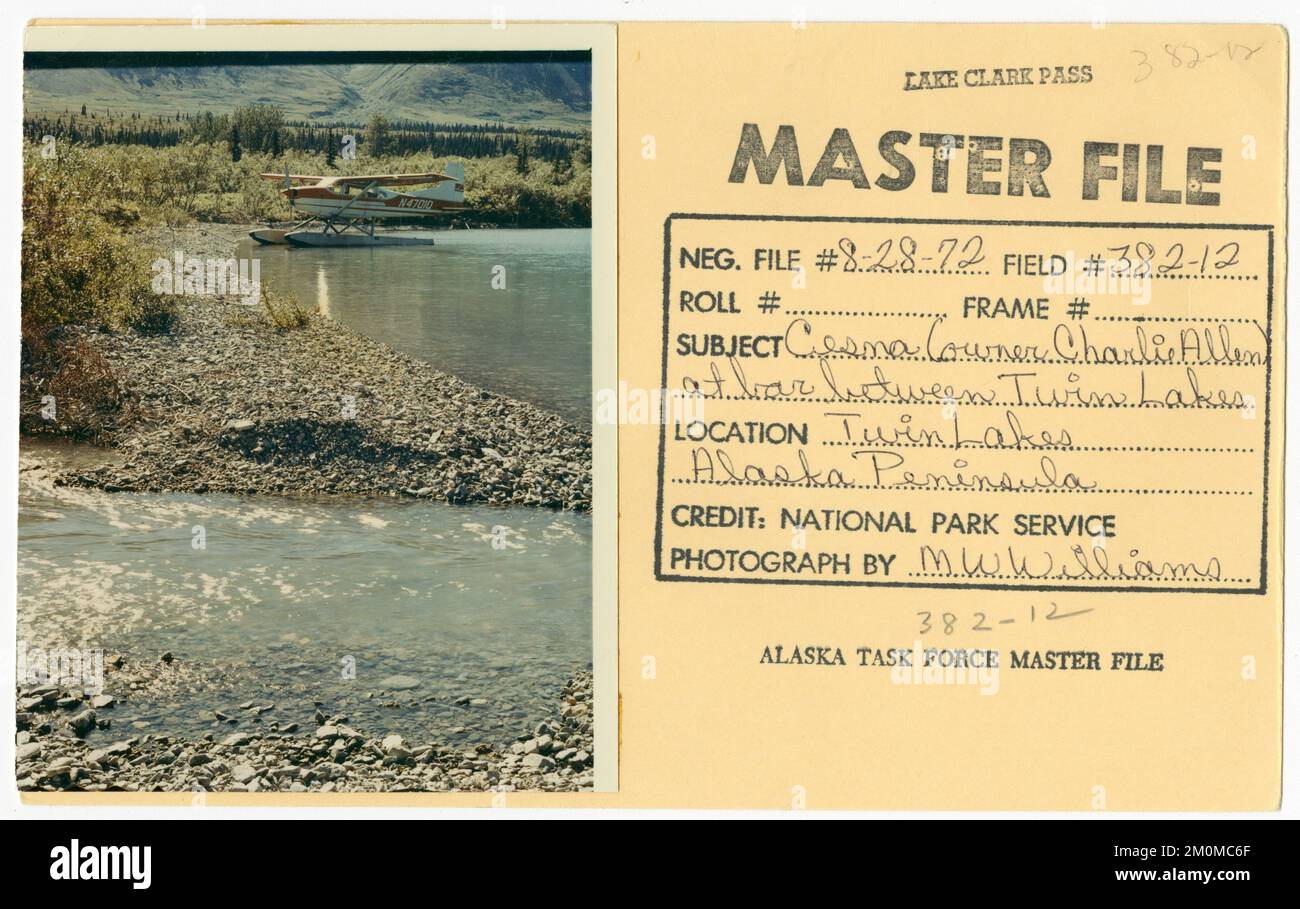 382-12
LAKE CLARK PASS
MASTER FILE
NEG. FILE # 8-28-72 FIELD # 382-12
ROLL # FRAME #
SUBJECT Cesna (owner Charlie Allen)
at bar between Twin Lakes
LOCATION Twin Lakes
Alaska Peninsula
CREDIT: NATIONAL PARK SERVICE
PHOTOGRAPH BY M W Williams
382-12
ALASKA TASK FORCE MASTER FILE
N4701Q
alamy
a
alamy
Image ID: 2M0MC6F
www.alamy.com